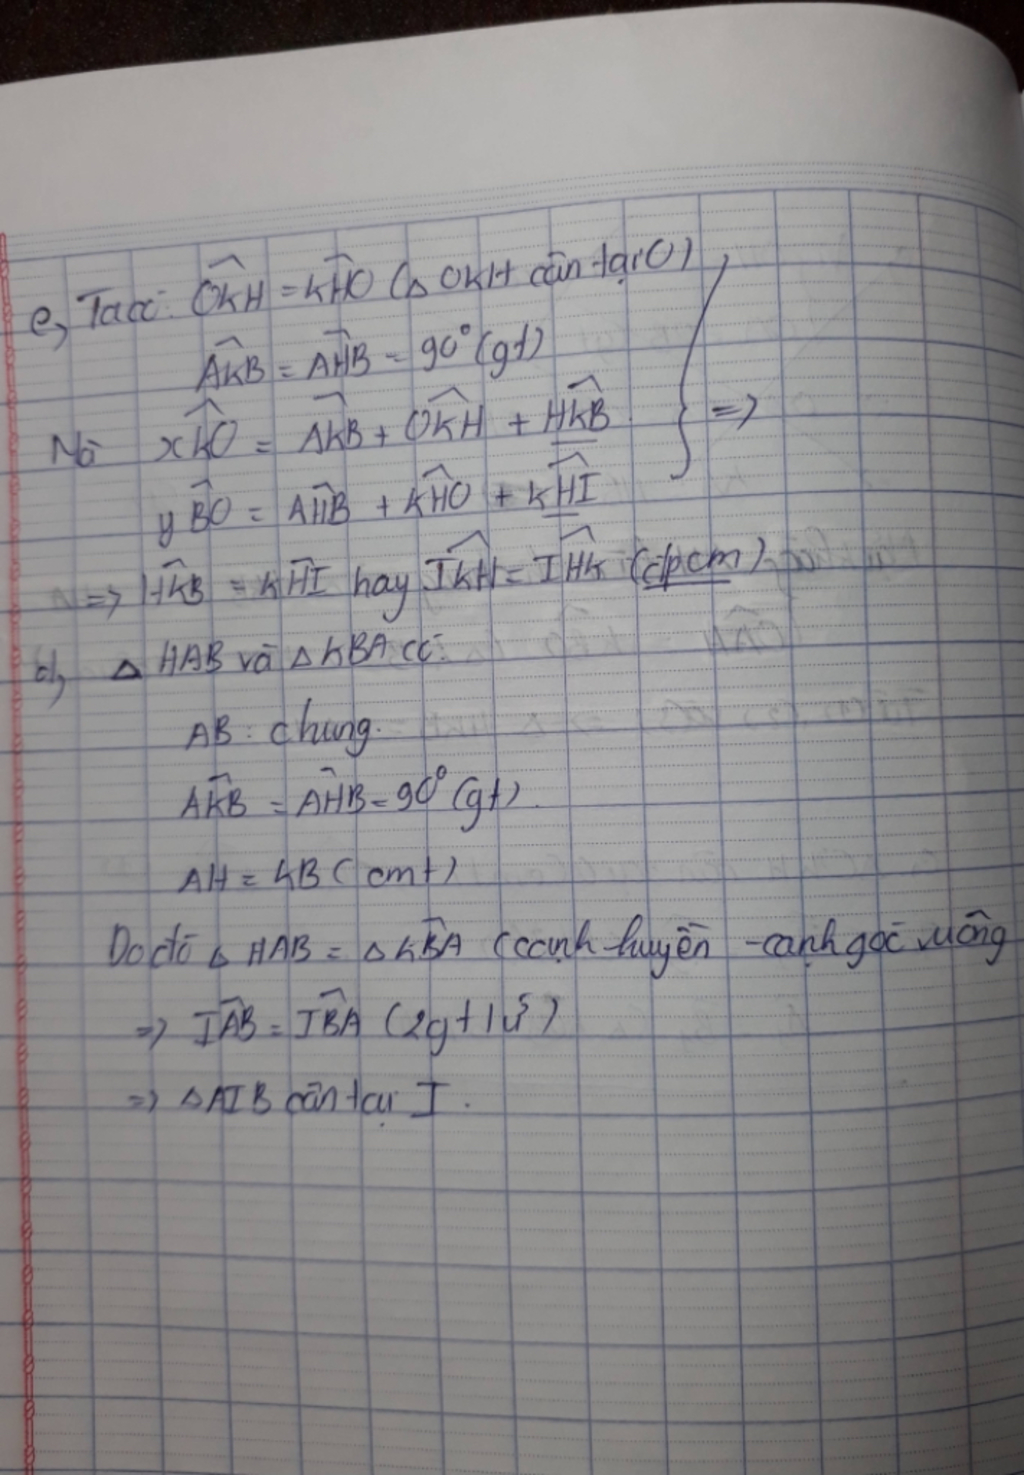 c, Ta có: OKH = KHO (△ OKH cân tại O)
AKB = AHB = 90° (gt)
Mà xKO = AKB + OKH + HKB
yBO = AHB + KHO + KHI
} =>
=> HKB = KHI hay IKH = IHK (đpcm)
d, △ HAB và △ KBA có:
AB : chung.
AKB = AHB = 90° (gt).
AH = KB (cmt)
Do đó △ HAB = △ KBA (cạnh huyền - cạnh góc vuông
=> IAB = IBA (2gt/ứ)
=> △AIB cân tại I.